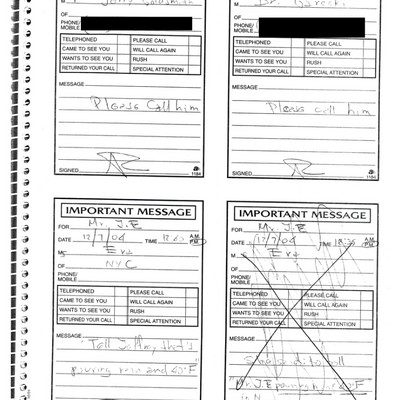 M
OF
PHONE/
MOBILE
TELEPHONED PLEASE CALL
CAME TO SEE YOU WILL CALL AGAIN
WANTS TO SEE YOU RUSH
RETURNED YOUR CALL SPECIAL ATTENTION
MESSAGE
Please call him
SIGNED 1184
M Dr.
OF
PHONE/
MOBILE
TELEPHONED PLEASE CALL
CAME TO SEE YOU WILL CALL AGAIN
WANTS TO SEE YOU RUSH
RETURNED YOUR CALL SPECIAL ATTENTION
MESSAGE
Please call him
SIGNED 1184
IMPORTANT MESSAGE
FOR Mr. J.E
DATE 12/7/04 TIME A.M. P.M.
M Eva
OF NYC
PHONE/
MOBILE
TELEPHONED PLEASE CALL
CAME TO SEE YOU WILL CALL AGAIN
WANTS TO SEE YOU RUSH
RETURNED YOUR CALL SPECIAL ATTENTION
MESSAGE
"Tell Jeffrey that's
pouring rain and 40°F"
IMPORTANT MESSAGE
FOR Mr. J.E
DATE 12/7/04 TIME A.M. P.M.
M Eva
OF
PHONE/
MOBILE
TELEPHONED PLEASE CALL
CAME TO SEE YOU WILL CALL AGAIN
WANTS TO SEE YOU RUSH
RETURNED YOUR CALL SPECIAL ATTENTION
MESSAGE
to tell
Mr. J.E
in N